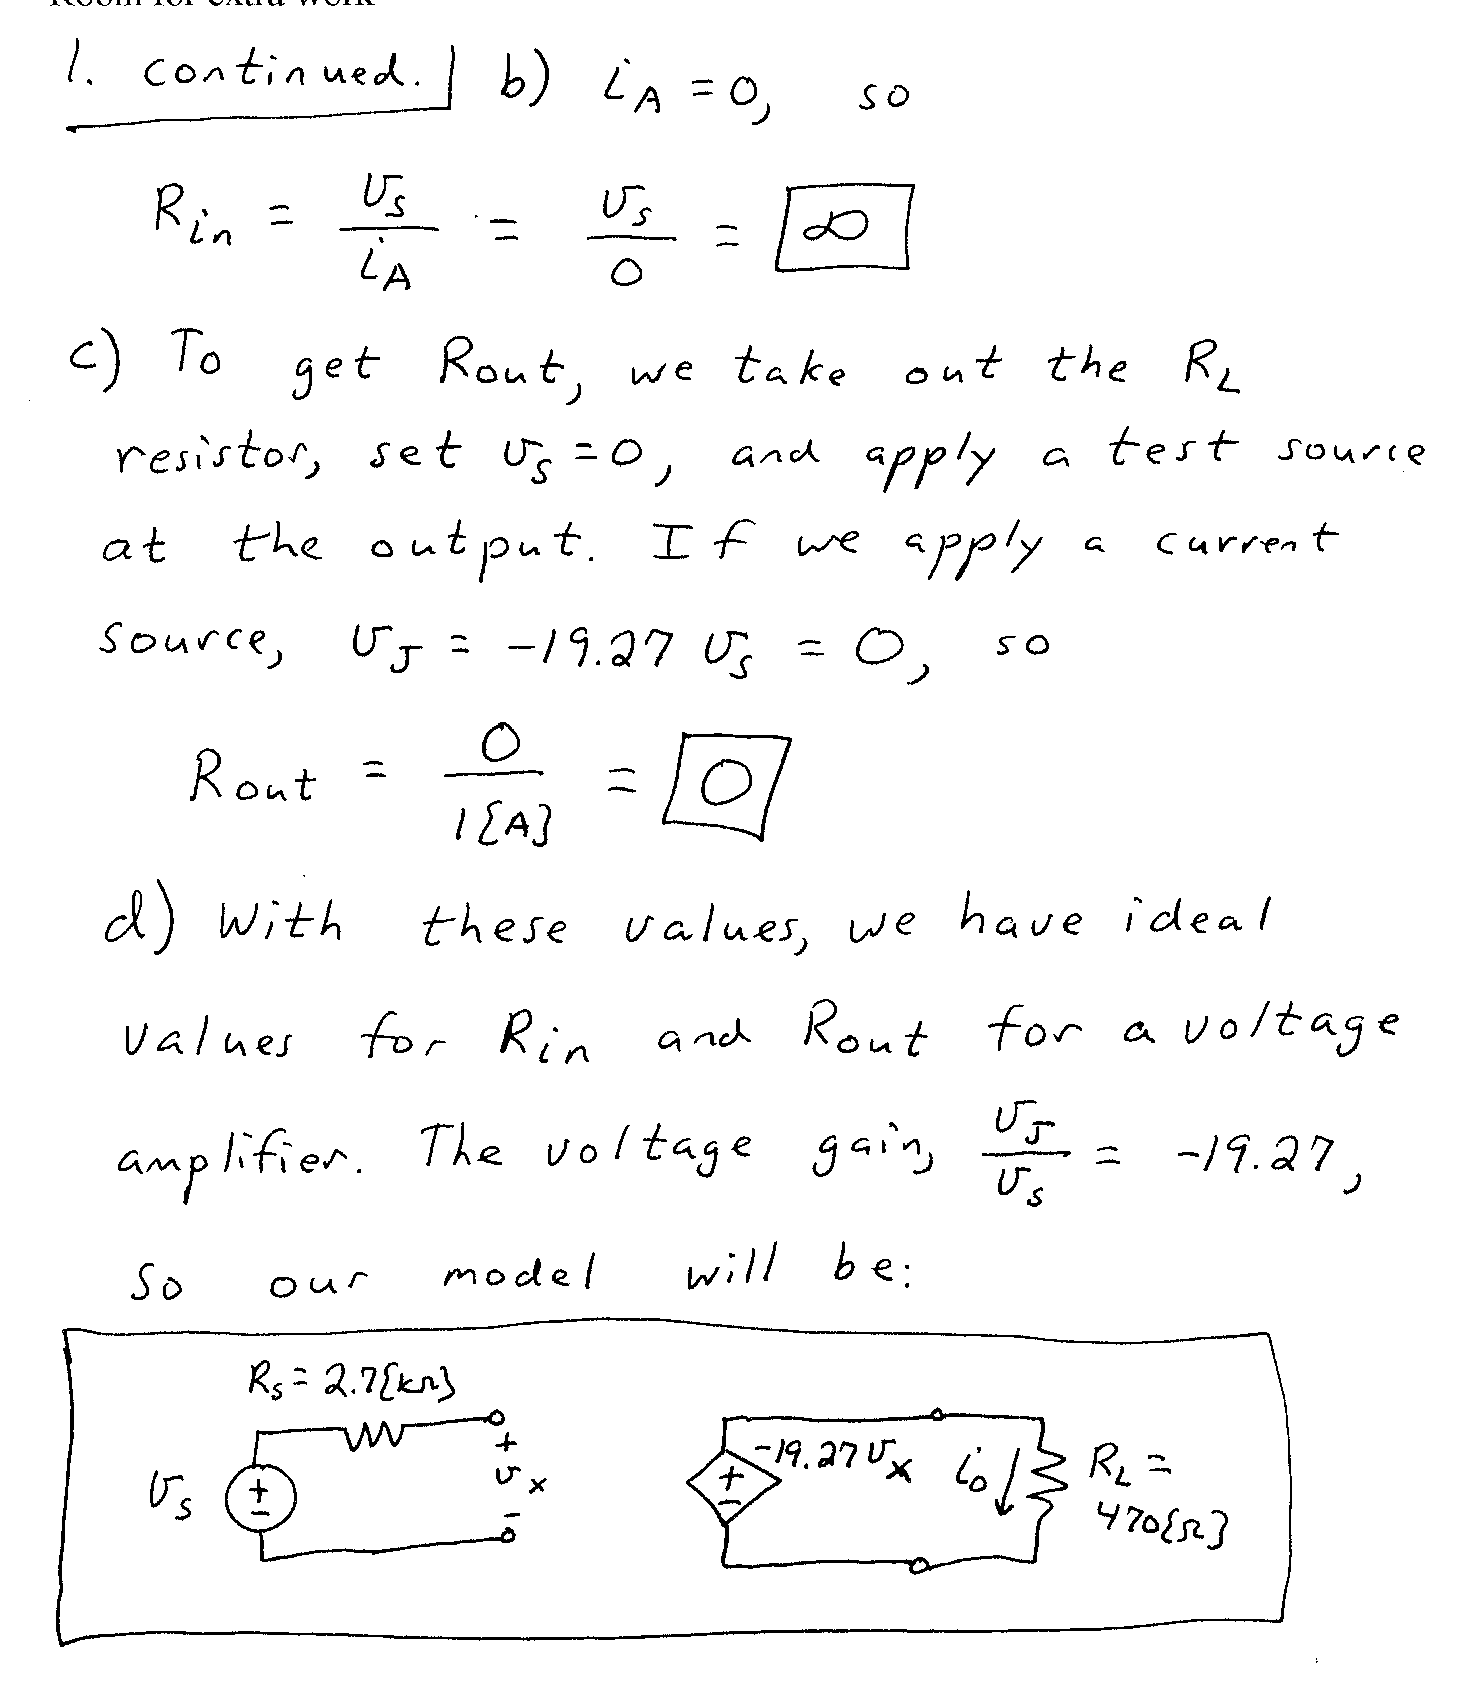 Room for extra work
1. continued. b) i_A = 0, so
R_in = v_S / i_A = v_S / 0 = ∞
c) To get Rout, we take out the R_L
resistor, set v_S = 0, and apply a test source
at the output. If we apply a current
source, v_J = -19.27 v_S = 0, so
Rout = 0 / 1{A} = 0
d) With these values, we have ideal
values for Rin and Rout for a voltage
amplifier. The voltage gain, v_J / v_S = -19.27,
so our model will be:
R_S = 2.7{kΩ}
v_S + -
+ v_X -
-19.27 v_X + -
i_O
R_L =
470{Ω}